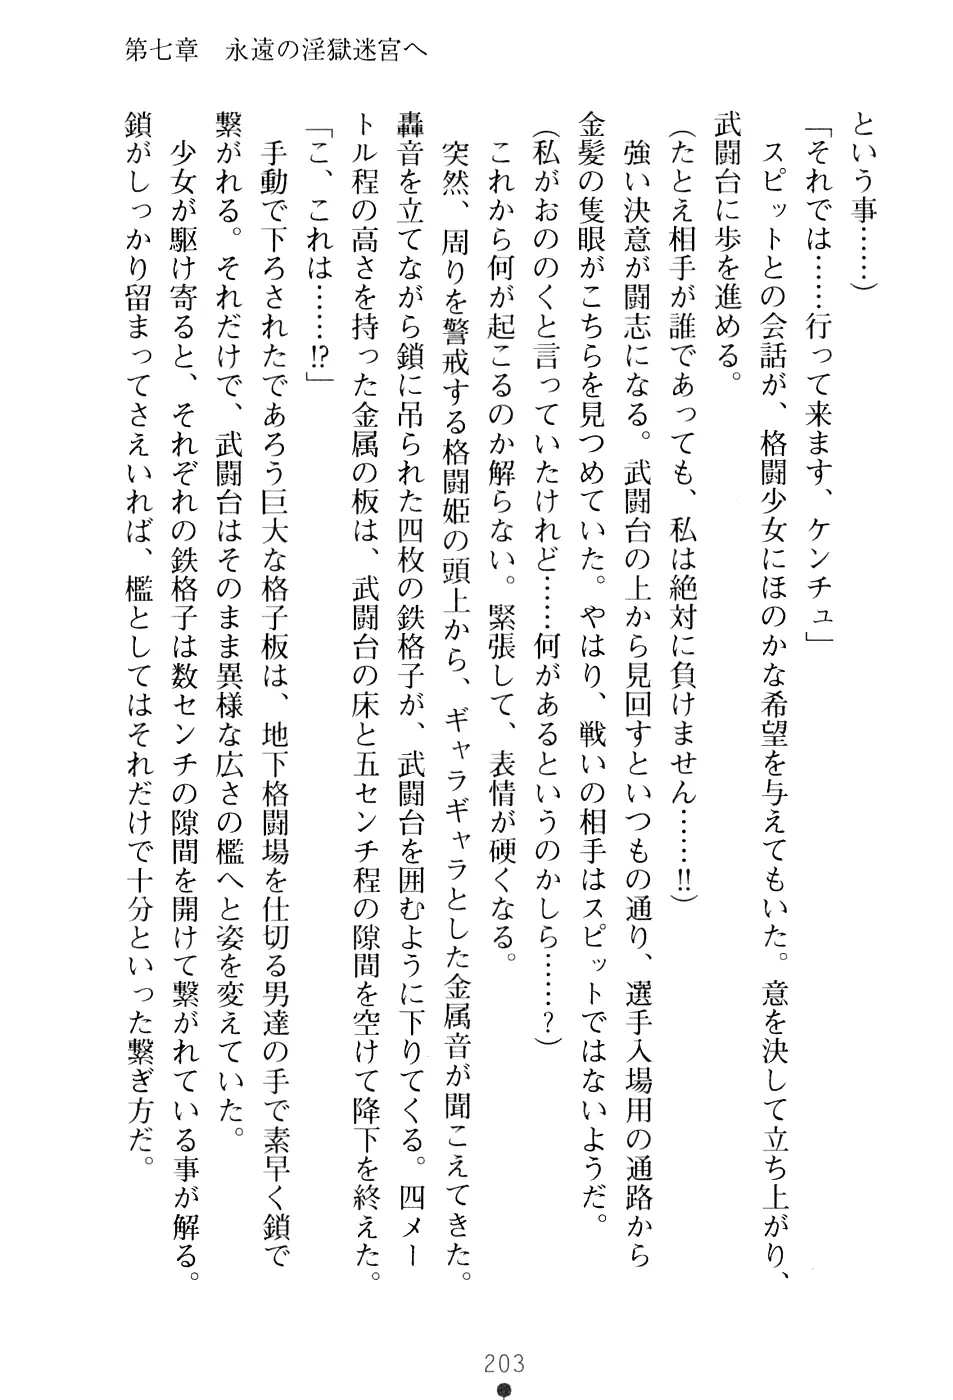 第七章　永遠の淫獄迷宮へ
という事……）
「それでは……行って来ます、ケンチュ」
　スピットとの会話が、格闘少女にほのかな希望を与えてもいた。意を決して立ち上がり、
武闘台に歩を進める。
（たとえ相手が誰であっても、私は絶対に負けません……!!）
　強い決意が闘志になる。武闘台の上から見回すといつもの通り、選手入場用の通路から
金髪の隻眼がこちらを見つめていた。やはり、戦いの相手はスピットではないようだ。
（私がおののくと言っていたけれど……何があるというのかしら……？）
　これから何が起こるのか解らない。緊張して、表情が硬くなる。
　突然、周りを警戒する格闘姫の頭上から、ギャラギャラとした金属音が聞こえてきた。
轟音を立てながら鎖に吊られた四枚の鉄格子が、武闘台を囲むように下りてくる。四メー
トル程の高さを持った金属の板は、武闘台の床と五センチ程の隙間を空けて降下を終えた。
「こ、これは……!?」
　手動で下ろされたであろう巨大な格子板は、地下格闘場を仕切る男達の手で素早く鎖で
繋がれる。それだけで、武闘台はそのまま異様な広さの檻へと姿を変えていた。
　少女が駆け寄ると、それぞれの鉄格子は数センチの隙間を開けて繋がれている事が解る。
鎖がしっかり留まってさえいれば、檻としてはそれだけで十分といった繋ぎ方だ。
203